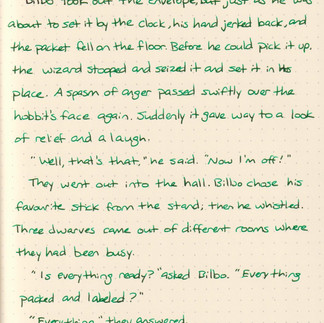 Bilbo took out the envelope, but just as he was
about to set it by the clock, his hand jerked back, and
the packet fell on the floor. Before he could pick it up,
the wizard stooped and seized it and set it in its
place. A spasm of anger passed swiftly over the
hobbit's face again. Suddenly it gave way to a look
of relief and a laugh.
"Well, that's that," he said. "Now I'm off!"
They went out into the hall. Bilbo chose his
favourite stick from the stand; then he whistled.
Three dwarves came out of different rooms where
they had been busy.
"Is everything ready?" asked Bilbo. "Everything
packed and labeled?"
"Everything," they answered.